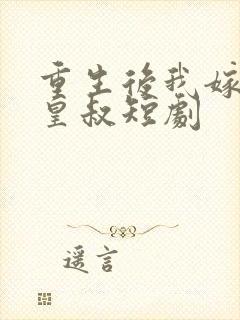 重生後我嫁
皇叔短劇
遥言